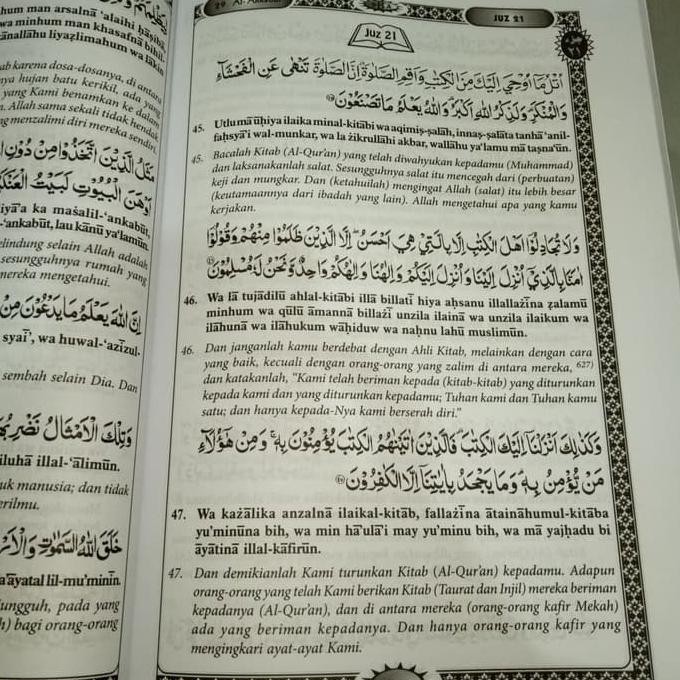 hum man arsalnā 'alaihi
wa minhum man khasafnā bihil-
ānallāhu liyaẓlimahum wa
ab karena dosa-dosanya, di antara
nya hujan batu kerikil, ada yang
yang Kami benamkan ke dalam
Allah sama sekali tidak hendak
menzalimi diri mereka sendiri.
مَثَلُ الَّذِيْنَ اتَّخَذُوْا مِنْ دُوْنِ
اَوْهَنَ الْبُيُوْتِ لَبَيْتُ
iyā'a ka maṡalil-'ankabūt,
-'ankabūt, lau kānū ya'lamūn.
elindung selain Allah adalah
sesungguhnya rumah yang
mereka mengetahui.
اِنَّ اللّٰهَ يَعْلَمُ مَا يَدْعُوْنَ مِنْ
syai', wa huwal-'azīzul-
sembah selain Dia. Dan
وَتِلْكَ الْاَمْثَالُ نَضْرِبُهَا
iluhā illal-'ālimūn.
uk manusia; dan tidak
erilmu.
خَلَقَ اللّٰهُ السَّمٰوٰتِ وَالْاَرْضَ
a'āyatal lil-mu'minīn.
ungguh, pada yang
h) bagi orang-orang
29
JUZ 21
JUZ 21
اُتْلُ مَآ اُوْحِيَ اِلَيْكَ مِنَ الْكِتٰبِ وَاَقِمِ الصَّلٰوةَۗ اِنَّ الصَّلٰوةَ تَنْهٰى عَنِ الْفَحْشَاۤءِ
وَالْمُنْكَرِۗ وَلَذِكْرُ اللّٰهِ اَكْبَرُۗ وَاللّٰهُ يَعْلَمُ مَا تَصْنَعُوْنَ ٤٥
45. Utlu mā ūḥiya ilaika minal-kitābi wa aqimiṣ-ṣalāh, innaṣ-ṣalāta tanhā 'anil-
faḥsyā'i wal-munkar, wa la żikrullāhi akbar, wallāhu ya'lamu mā taṣna'ūn.
45. Bacalah Kitab (Al-Qur'an) yang telah diwahyukan kepadamu (Muhammad)
dan laksanakanlah salat. Sesungguhnya salat itu mencegah dari (perbuatan)
keji dan mungkar. Dan (ketahuilah) mengingat Allah (salat) itu lebih besar
(keutamaannya dari ibadah yang lain). Allah mengetahui apa yang kamu
kerjakan.
وَلَا تُجَادِلُوْٓا اَهْلَ الْكِتٰبِ اِلَّا بِالَّتِيْ هِيَ اَحْسَنُۖ اِلَّا الَّذِيْنَ ظَلَمُوْا مِنْهُمْ وَقُوْلُوْٓا
اٰمَنَّا بِالَّذِيْٓ اُنْزِلَ اِلَيْنَا وَاُنْزِلَ اِلَيْكُمْ وَاِلٰهُنَا وَاِلٰهُكُمْ وَاحِدٌ وَّنَحْنُ لَهٗ مُسْلِمُوْنَ ٤٦
46. Wa lā tujādilū ahlal-kitābi illā billatī hiya aḥsanu illallażīna ẓalamū
minhum wa qūlū āmannā billażī unzila ilainā wa unzila ilaikum wa
ilāhunā wa ilāhukum wāḥiduw wa naḥnu lahū muslimūn.
46. Dan janganlah kamu berdebat dengan Ahli Kitab, melainkan dengan cara
yang baik, kecuali dengan orang-orang yang zalim di antara mereka, 627)
dan katakanlah, "Kami telah beriman kepada (kitab-kitab) yang diturunkan
kepada kami dan yang diturunkan kepadamu; Tuhan kami dan Tuhan kamu
satu; dan hanya kepada-Nya kami berserah diri."
وَكَذٰلِكَ اَنْزَلْنَآ اِلَيْكَ الْكِتٰبَۗ فَالَّذِيْنَ اٰتَيْنٰهُمُ الْكِتٰبَ يُؤْمِنُوْنَ بِهٖۚ وَمِنْ هٰٓؤُلَاۤءِ
مَنْ يُّؤْمِنُ بِهٖۗ وَمَا يَجْحَدُ بِاٰيٰتِنَآ اِلَّا الْكٰفِرُوْنَ ٤٧
47. Wa każālika anzalnā ilaikal-kitāb, fallażīna ātaināhumul-kitāba
yu'minūna bih, wa min hā'ulā'i may yu'minu bih, wa mā yajḥadu bi
āyātinā illal-kāfirūn.
47. Dan demikianlah Kami turunkan Kitab (Al-Qur'an) kepadamu. Adapun
orang-orang yang telah Kami berikan Kitab (Taurat dan Injil) mereka beriman
kepadanya (Al-Qur'an), dan di antara mereka (orang-orang kafir Mekah)
ada yang beriman kepadanya. Dan hanya orang-orang kafir yang
mengingkari ayat-ayat Kami.